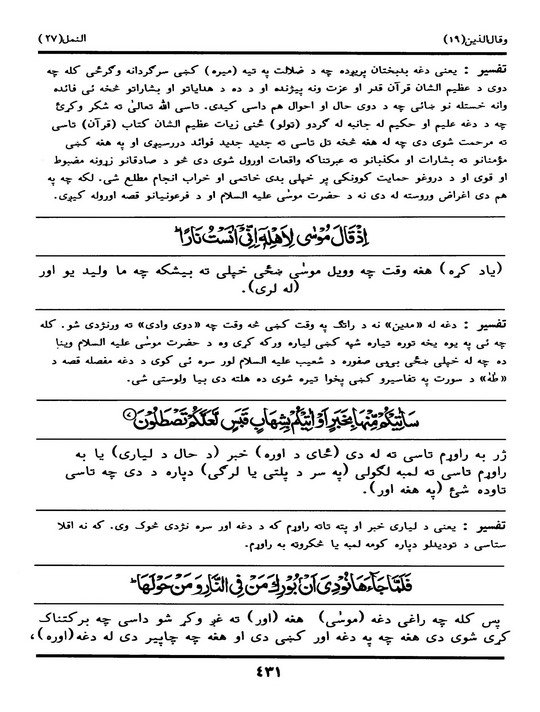 وقال الذین(۱۹) النمل(۲۷)
تفسیر : یعنی دغه بدبختان پریږده چه د ضلالت په تیه (میره) کښی سرگردانه وگرځی کله چه
دوی د عظیم الشان قرآن قدر او عزت ونه پیژنده او د ده د هدایاتو او بشاراتو څخه ئی فائده
وانه خستله نو ښائی چه د دوی حال او احوال هم داسی کیدی. تاسی الله تعالیٰ ته شکر وکړئ
چه د دغه علیم او حکیم له جانبه له گردو (ټولو) ځنی زیات عظیم الشان کتاب (قرآن) تاسی
ته مرحمت شوی دی چه له هغه څخه تل تاسی ته جدید جدید فوائد دررسیږی او په هغه کښی
مؤمنانو ته بشارات او مکذبانو ته عبرتناکه واقعات اورول شوی دی څو د صادقانو زړونه مضبوط
او قوی او د دروغو حمایت کوونکی پر خپلی بدی خاتمی او خراب انجام مطلع شی. لکه چه په
هم دی اغراض وروسته له دی نه د حضرت موسٰی علیه السلام او د فرعونیانو قصه اوروله کیږی.
اِذْ قَالَ مُوْسٰی لِاَهْلِهٖٓ اِنِّیْۤ اٰنَسْتُ نَارًاؕ
(یاد کړه) هغه وقت چه وویل موسٰی ښځی خپلی ته بیشکه چه ما ولید یو اور
(له لری).
تفسیر : دغه له «مدین» نه د راتگ په وقت کښی څه وقت چه «دوی وادی» ته ورنژدی شو. کله
چه ئی په یوه یخه توره تیاره شپه کښی لیاره ورکه کړی وه د حضرت موسٰی علیه السلام وینا
ده چه له خپلی ښځی بی بی صفوره د شعیب علیه السلام لور سره ئی کوی د دغه مفصله قصه د
«طٰهٰ» د سورت په تفاسیرو کښی پخوا تیره شوی ده هلته دی بیا ولوستی شی.
سَاٰتِیْكُمْ مِّنْهَا بِخَبَرٍ اَوْ اٰتِیْكُمْ بِشِهَابٍ قَبَسٍ لَّعَلَّكُمْ تَصْطَلُوْنَ۷
ژر به راوړم تاسی ته له دی (ځای د اوره) خبر (د حال د لیاری) یا به
راوړم تاسی ته لمبه لگولی (په سر د پلتی یا لرگی) دپاره د دی چه تاسی
تاوده شئ (په هغه اور).
تفسیر : یعنی د لیاری خبر او پته تاته راوړم که د دغه اور سره نژدی څوک وی. که نه اقلا
ستاسی د تودیدلو دپاره کومه لمبه یا سکروټه به راوړم.
فَلَمَّا جَآءَهَا نُوْدِیَ اَنْۢ بُوْرِكَ مَنْ فِی النَّارِ وَ مَنْ حَوْلَهَاؕ
پس کله چه راغی دغه (موسٰی) هغه (اور) ته غږ وکړ شو داسی چه برکتناک
کړی شوی دی هغه چه په دغه اور کښی دی او هغه چه چاپیر دی له دغه (اوره)،
٤٣١